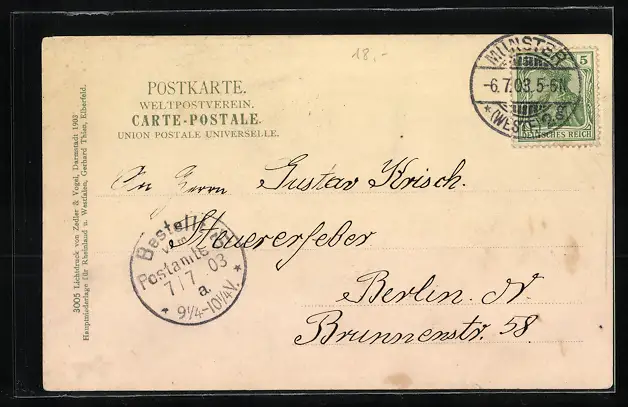 18,-
POSTKARTE.
WELTPOSTVEREIN.
CARTE-POSTALE.
UNION POSTALE UNIVERSELLE.
MÜNSTER
-6.7.03.5-6N
* (WESTF) 2
5
DEUTSCHES REICH
An Herrn Gustav Krisch.
Steuererheber
Berlin. N.
Brunnenstr. 58.
Bestellt
vom
Postamte
7/7 03
a.
* 9¼-10¼V. *
3005 Lichtdruck von Zedler & Vogel, Darmstadt 1903
Hauptniederlage für Rheinland u. Westfalen, Gerhard Thien, Elberfeld.